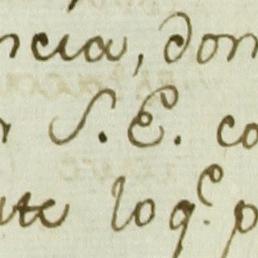 ncia, don
S. E. co
te lo q.e p